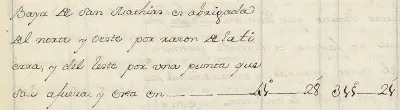 Baya de San Mathias es abrigada
del norte y oeste por razon de la ti
erra, y del leste por vna punta que
sale afuera, y esta en 28 24